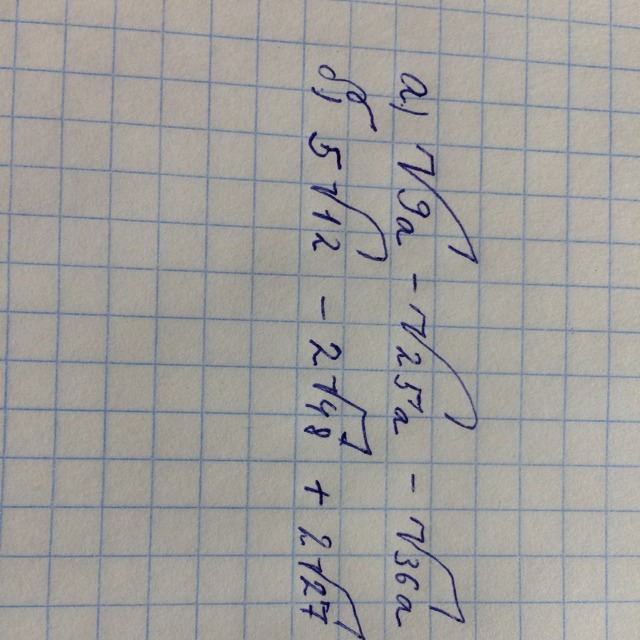 а) √9a - √25a - √36a
б) 5√12 - 2√48 + 2√27